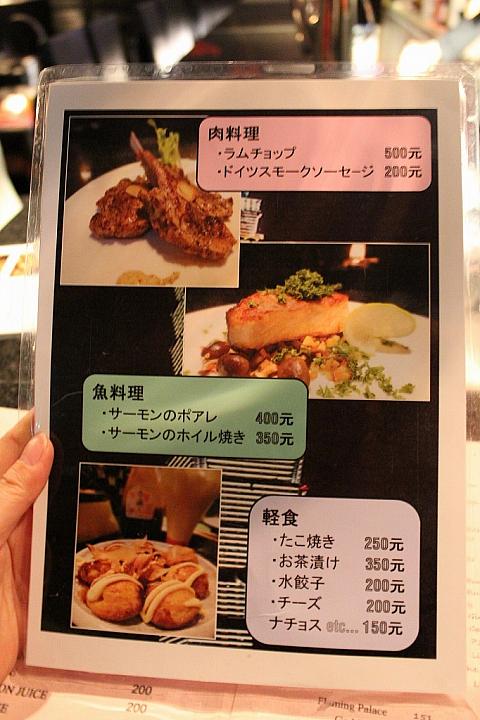 肉料理
・ラムチョップ 500元
・ドイツスモークソーセージ 200元
魚料理
・サーモンのポアレ 400元
・サーモンのホイル焼き 350元
軽食
・たこ焼き 250元
・お茶漬け 350元
・水餃子 200元
・チーズ 200元
ナチョス etc... 150元
ON JUICE 200
200
Palace 151